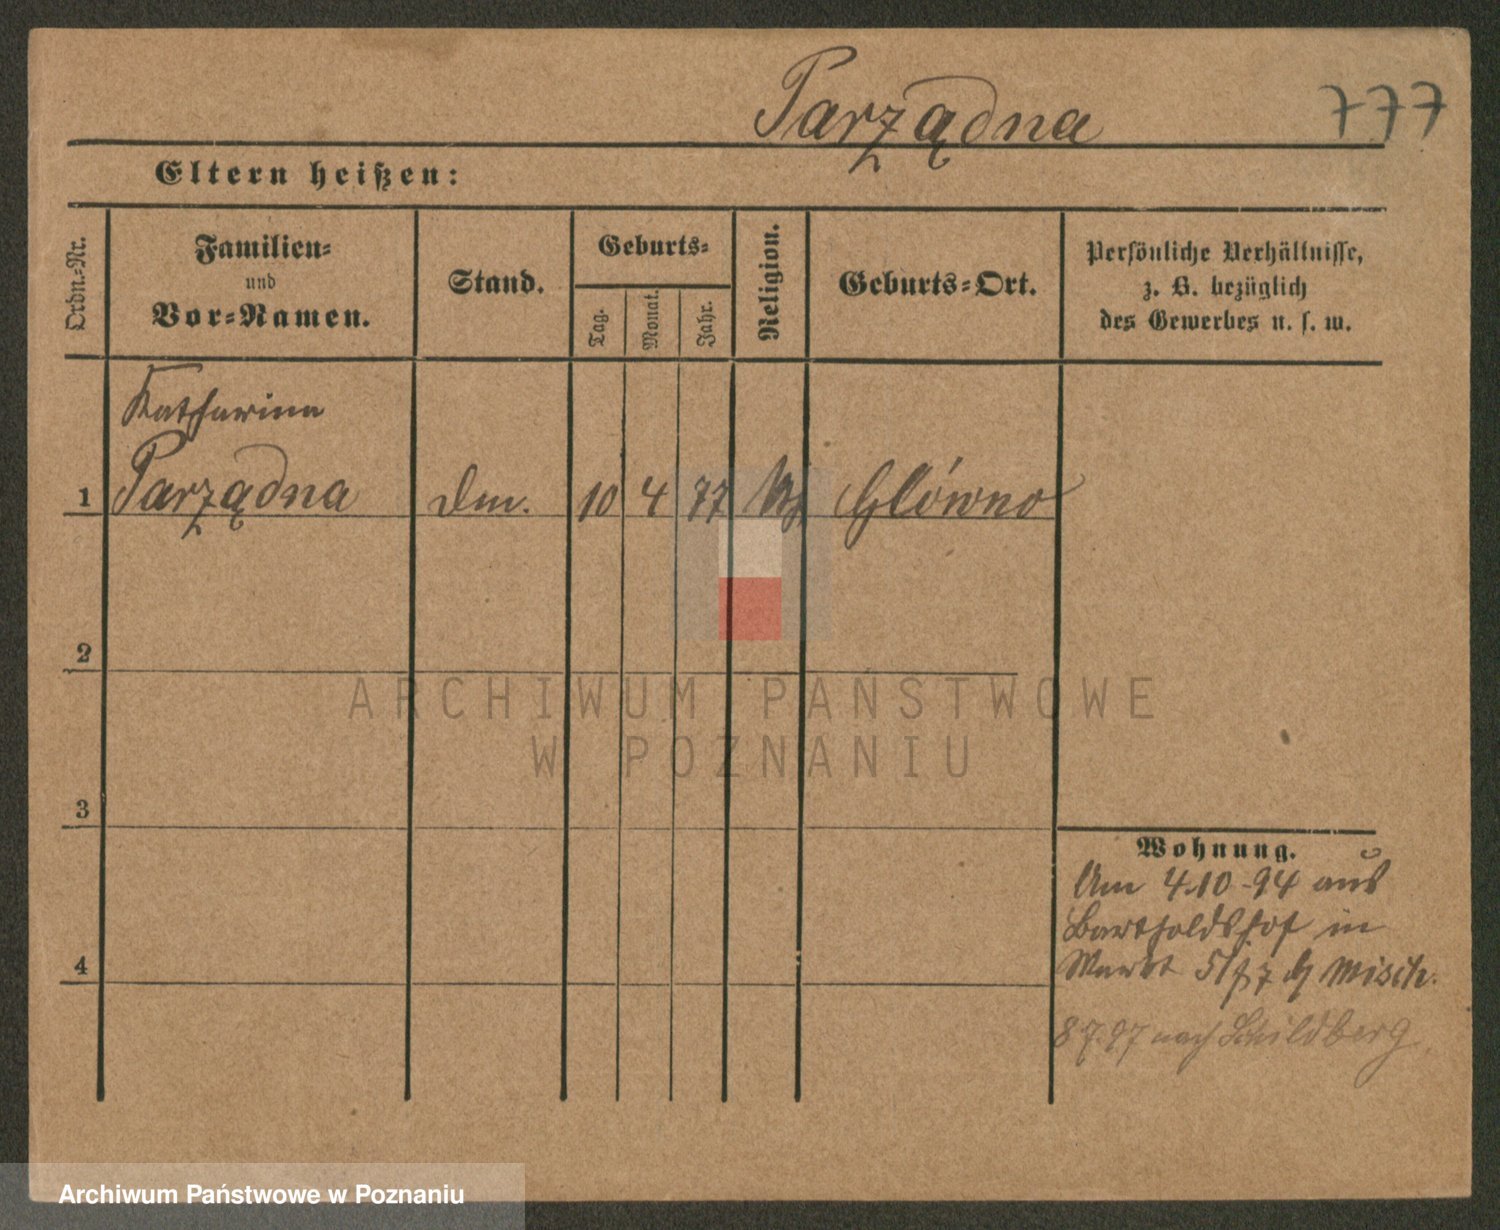 Parządna 777
Eltern heißen:
Ordn.-Nr.
Familien-
und
Vor-Namen.
Stand.
Geburts-
Tag.
Monat.
Jahr.
Religion.
Geburts-Ort.
Persönliche Verhältnisse,
z. B. bezüglich
des Gewerbes u. s. w.
Katharina
1 Parządna 10 4 77 Główno
2
3
4
Wohnung.
Am 4.10-94 aus
Bartholdshof in
Markt
8 7.97 nach Schildberg
ARCHIWUM PAŃSTWOWE
W POZNANIU
Archiwum Państwowe w Poznaniu